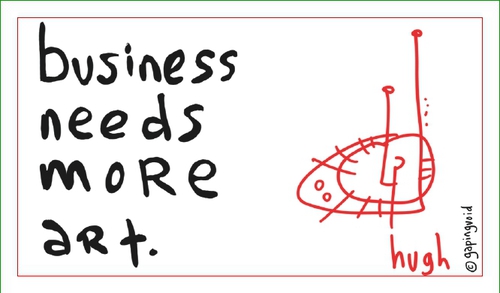 business
needs
more
art.
hugh
©gapingvoid